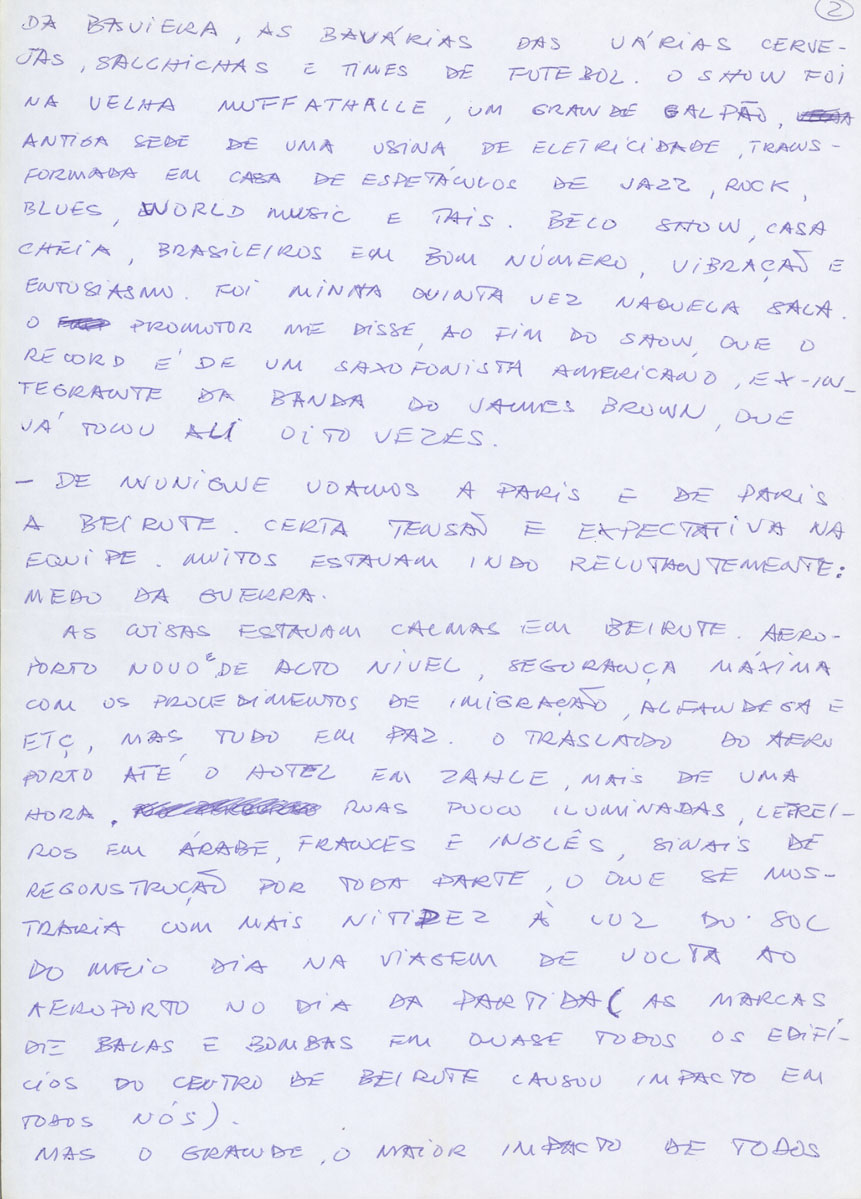 2
DA BAVIERA, AS BAVÁRIAS DAS VÁRIAS CERVE-
JAS, SALCHICHAS E TIMES DE FUTEBOL. O SHOW FOI
NA VELHA MUFFATHALLE, UM GRANDE GALPÃO,
ANTIGA SEDE DE UMA USINA DE ELETRICIDADE, TRANS-
FORMADA EM CASA DE ESPETÁCULOS DE JAZZ, ROCK,
BLUES, WORLD MUSIC E TAIS. BELO SHOW, CASA
CHEIA, BRASILEIROS EM BOM NÚMERO, VIBRAÇÃO E
ENTUSIASMO. FOI MINHA QUINTA VEZ NAQUELA SALA.
O PROMOTOR ME DISSE, AO FIM DO SHOW, QUE O
RECORD É DE UM SAXOFONISTA AMERICANO, EX-IN-
TEGRANTE DA BANDA DO JAMES BROWN, QUE
JÁ TOCOU ALI OITO VEZES.
– DE MUNIQUE VOAMOS A PARIS E DE PARIS
A BEIRUTE. CERTA TENSÃO E EXPECTATIVA NA
EQUIPE. MUITOS ESTAVAM INDO RELUTANTEMENTE:
MEDO DA GUERRA.
AS COISAS ESTAVAM CALMAS EM BEIRUTE. AERO-
PORTO NOVO E DE ALTO NÍVEL, SEGURANÇA MÁXIMA
COM OS PROCEDIMENTOS DE IMIGRAÇÃO, ALFANDEGA E
ETÇ, MAS TUDO EM PAZ. O TRASLADO DO AERO
PORTO ATÉ O HOTEL EM ZAHLE, MAIS DE UMA
HORA, RUAS POUCO ILUMINADAS, LETREI-
ROS EM ÁRABE, FRANCÊS E INGLÊS, SINAIS DE
RECONSTRUÇÃO POR TODA PARTE, O QUE SE MOS-
TRARIA COM MAIS NITIDEZ À LUZ DO SOL
DO MEIO DIA NA VIAGEM DE VOLTA AO
AEROPORTO NO DIA DA PARTIDA (AS MARCAS
DE BALAS E BOMBAS EM QUASE TODOS OS EDIFÍ-
CIOS DO CENTRO DE BEIRUTE CAUSOU IMPACTO EM
TODOS NÓS).
MAS O GRANDE, O MAIOR IMPACTO DE TODOS